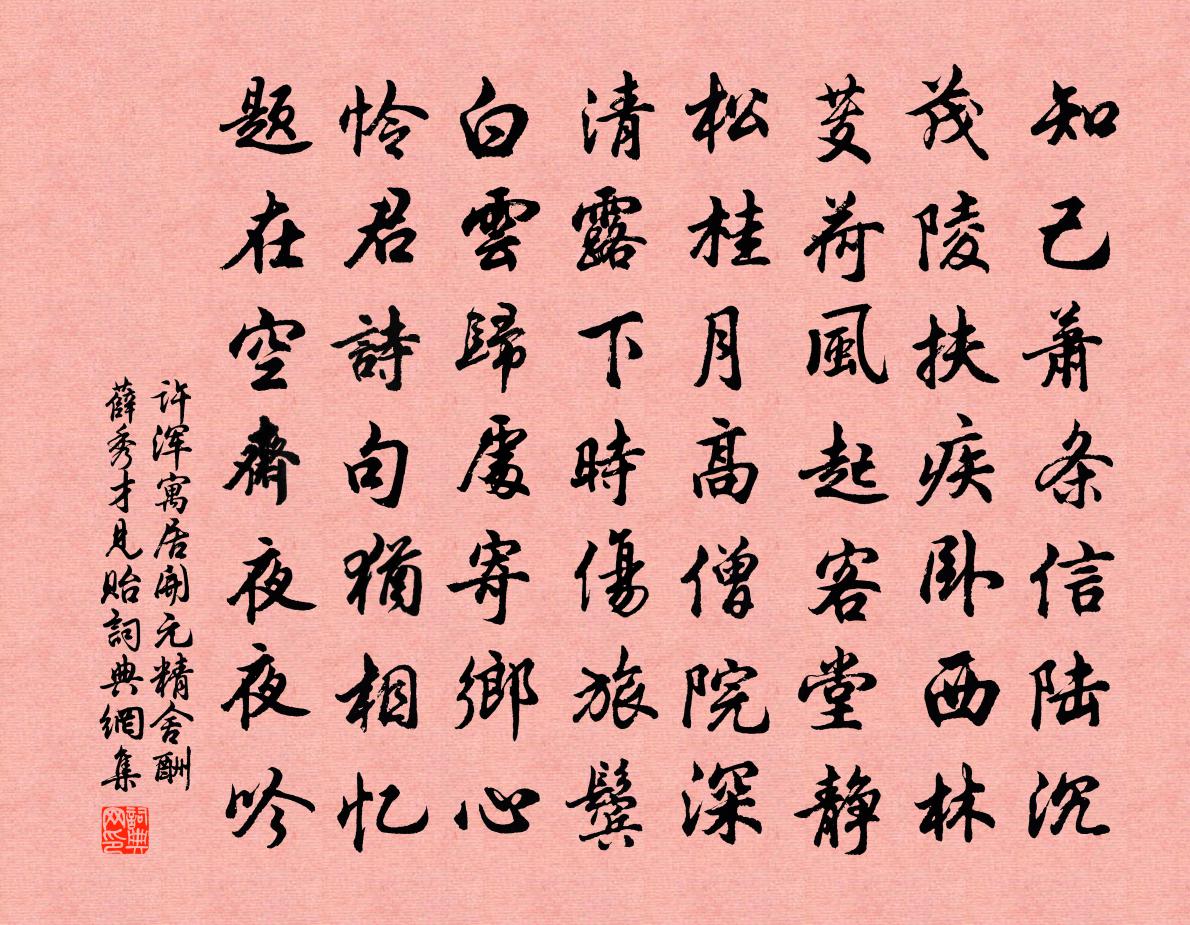 知己萧条信陆沉
茂陵扶疾卧西林
芰荷風起客堂静
松桂月高僧院深
清露下時傷旅鬢
白雲歸處寄鄉心
怜君詩句猶相忆
题在空齋夜夜吟
许浑寓居開元精舍酬
薛秀才見貽詞典網集
詞典
网印